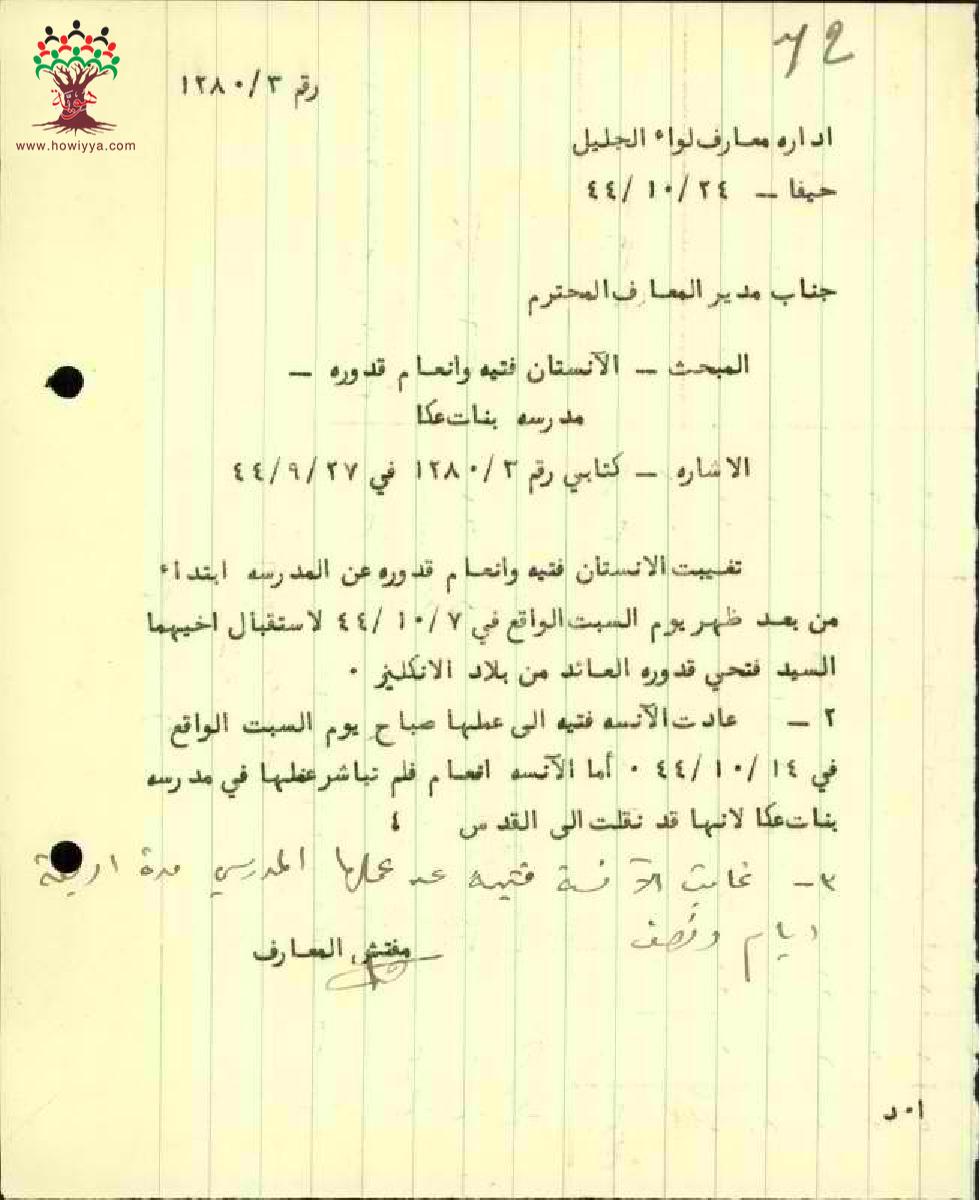 72
هوية
www.howiyya.com
رقم ١٢٨٠/٣
اداره معارف لواء الجليل
حيفا — ٤٤/١٠/٢٤
جناب مدير المعارف المحترم
المبحث — الآنستان فتيه وانعام قدوره —
مدرسه بنات عكا
الاشاره — كتابي رقم ١٢٨٠/٣ في ٤٤/٩/٢٧
تغيبت الانستان فتيه وانعام قدوره عن المدرسه ابتداء
من بعد ظهر يوم السبت الواقع في ٤٤/١٠/٧ لاستقبال اخيهما
السيد فتحي قدوره العائد من بلاد الانكليز ٠
٢ — عادت الآنسه فتيه الى عملها صباح يوم السبت الواقع
في ٤٤/١٠/١٤ ٠ أما الآنسه انعام فلم تباشر عملها في مدرسه
بنات عكا لانها قد نقلت الى القدس ٤
٣ - غابت الآنسة فتيه عن عملها المدرسي مدة اربعة
ايام ونصف
مفتش المعارف
ا٠د